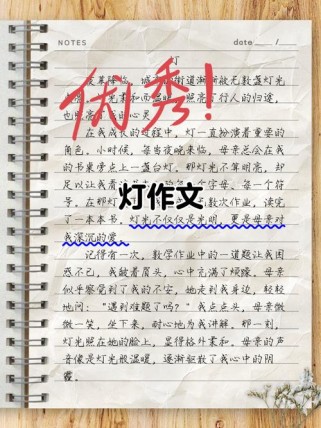 NOTES
date
灯
夜幕降临，城市的街道渐渐被无数盏灯光
优秀！
照亮了行人的归途，
也照亮了我的心灵
在我成长的过程中，灯一直扮演着重要的
角色。小时候，每当夜晚来临，母亲总会在我
的书桌旁点上一盏台灯。那灯光不算明亮，却
足以让我看清
每一个字母、每一个符
灯作文
号。在那
数次作业，读完
了一本本书。灯光不仅仅是光明，更是母亲对
我深沉的爱。
记得有一次，数学作业中的一道题让我困
惑不已，我皱着眉头，心中充满了烦躁。母亲
似乎察觉到了我的不安，她走到我身边，轻轻
地问：“遇到难题了吗？”我点点头，母亲微
微一笑，坐下来，耐心地为我讲解。那一刻，
灯光照在她的脸上，显得格外柔和。母亲的声
音像是灯光般温暖，逐渐驱散了我心中的阴
霾。